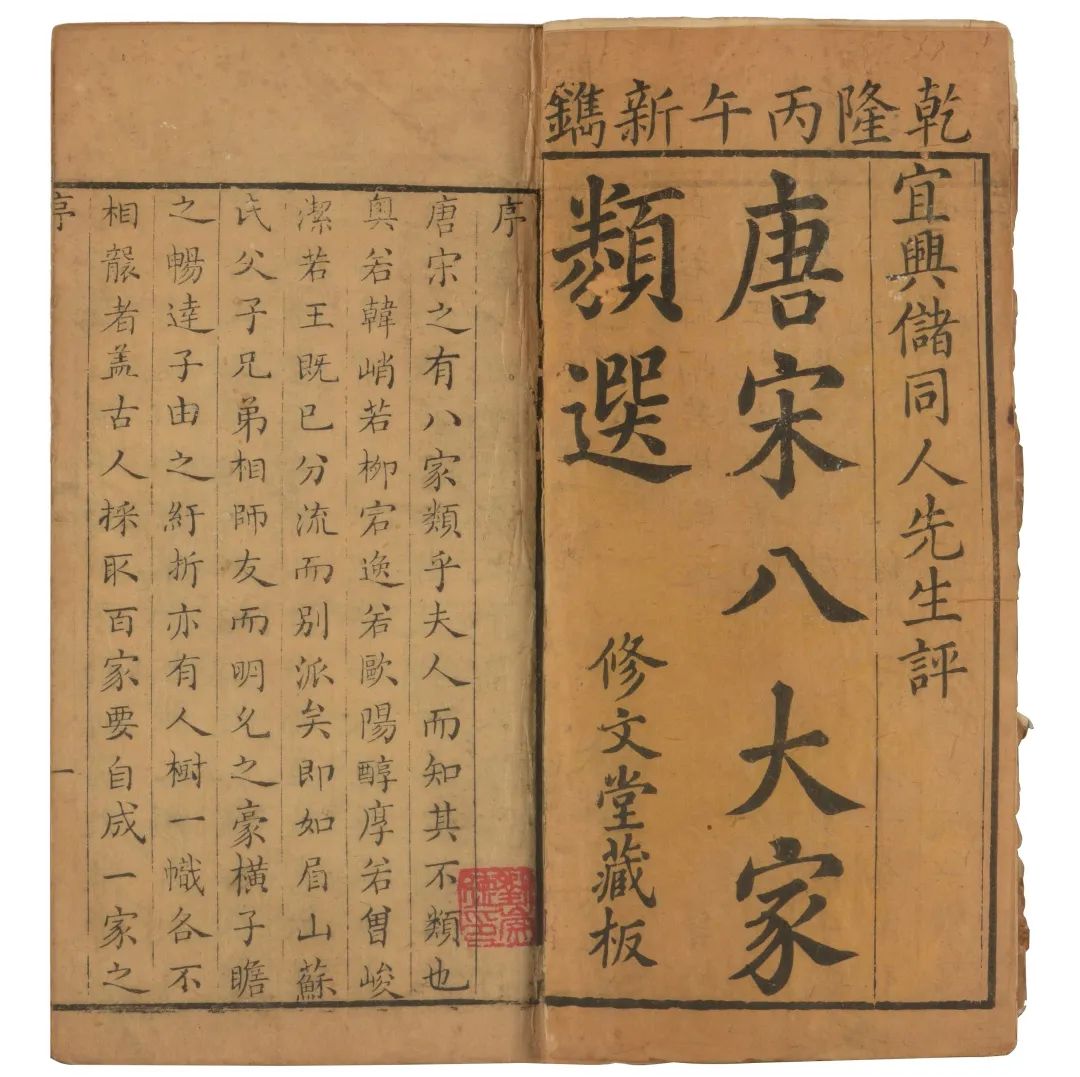 乾隆丙午新鐫
宜興儲同人先生評
唐宋八大家
類選
修文堂藏板
序
唐宋之有八家類乎夫人而知其不類也
奥若韓峭若柳宕逸若歐陽醇厚若曽峻
潔若王既已分流而别派矣即如眉山蘇
氏父子兄弟相師友而明允之豪橫子瞻
之暢達子由之紆折亦有人樹一幟各不
相襲者盖古人採取百家要自成一家之
序
一